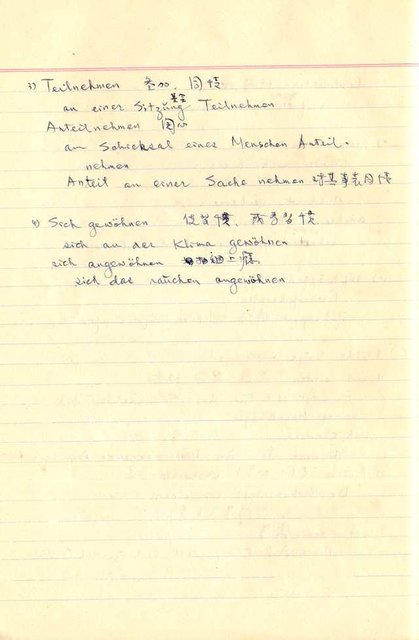 3) Teilnehmen 参加、同情
an einer Sitzung Teilnehmen
Anteilnehmen 关心
an Schicksal eines Menschen Anteil-
nehmen
Anteil an einer Sache nehmen 对某事表同情
4) Sich gewöhnen 使习惯、
sich an der Klima gewöhnen
sich angewöhnen 上瘾
sich das rauchen angewöhnen